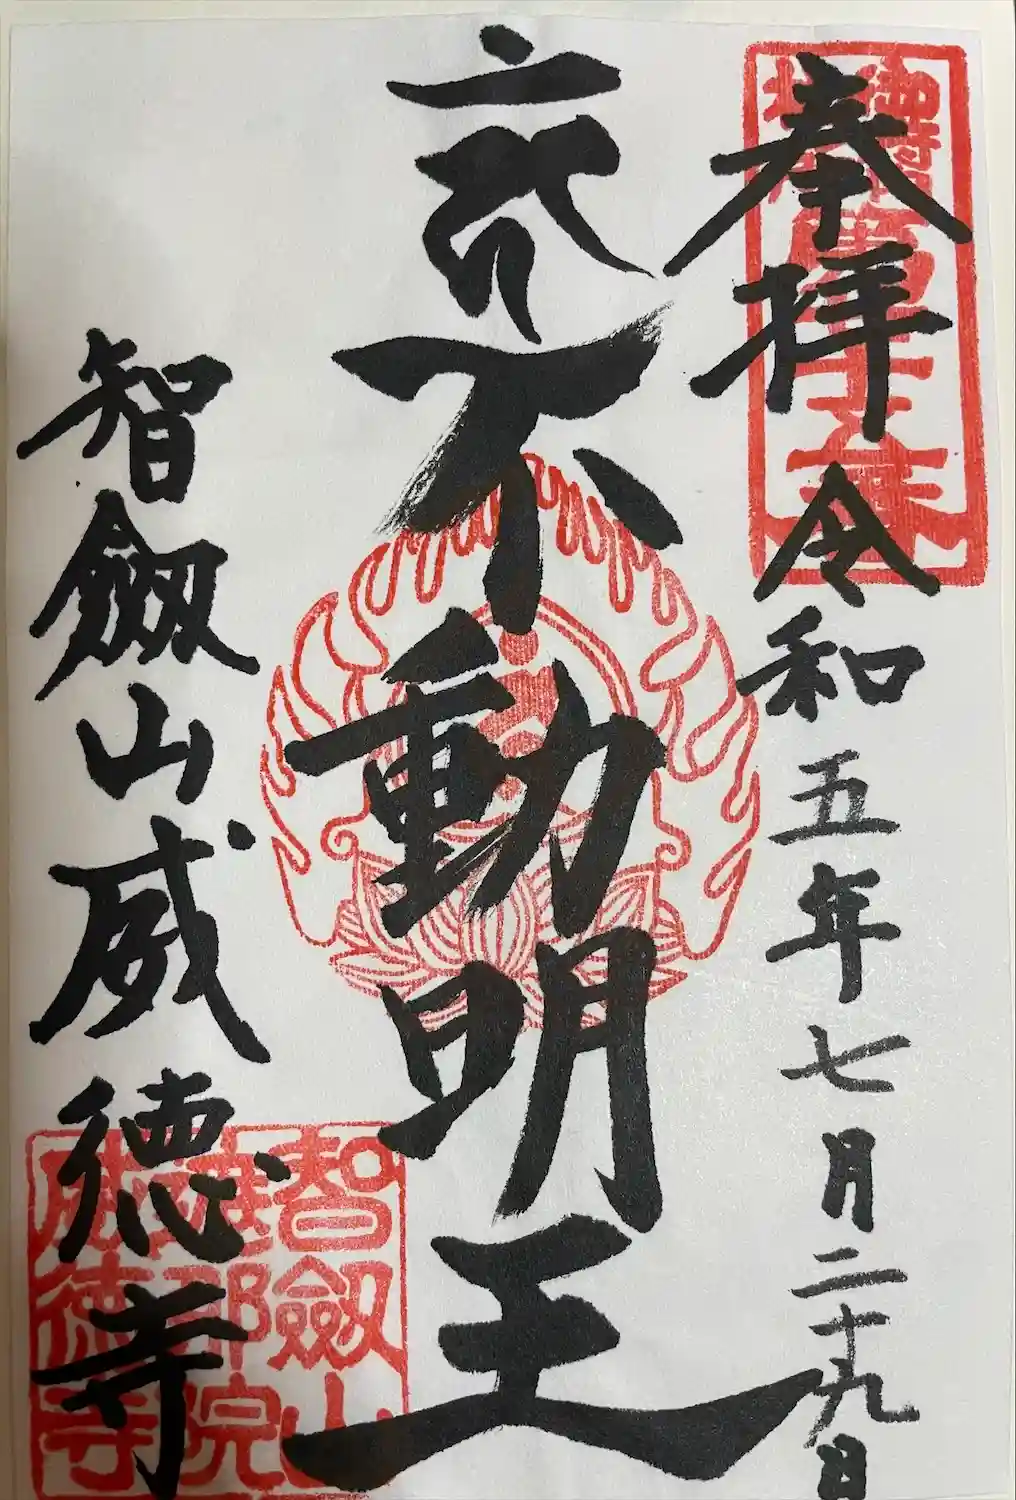 奉拝 令和五年七月二十九日
不動明王
智劔山威徳寺
智劔山
遮那院
威徳寺